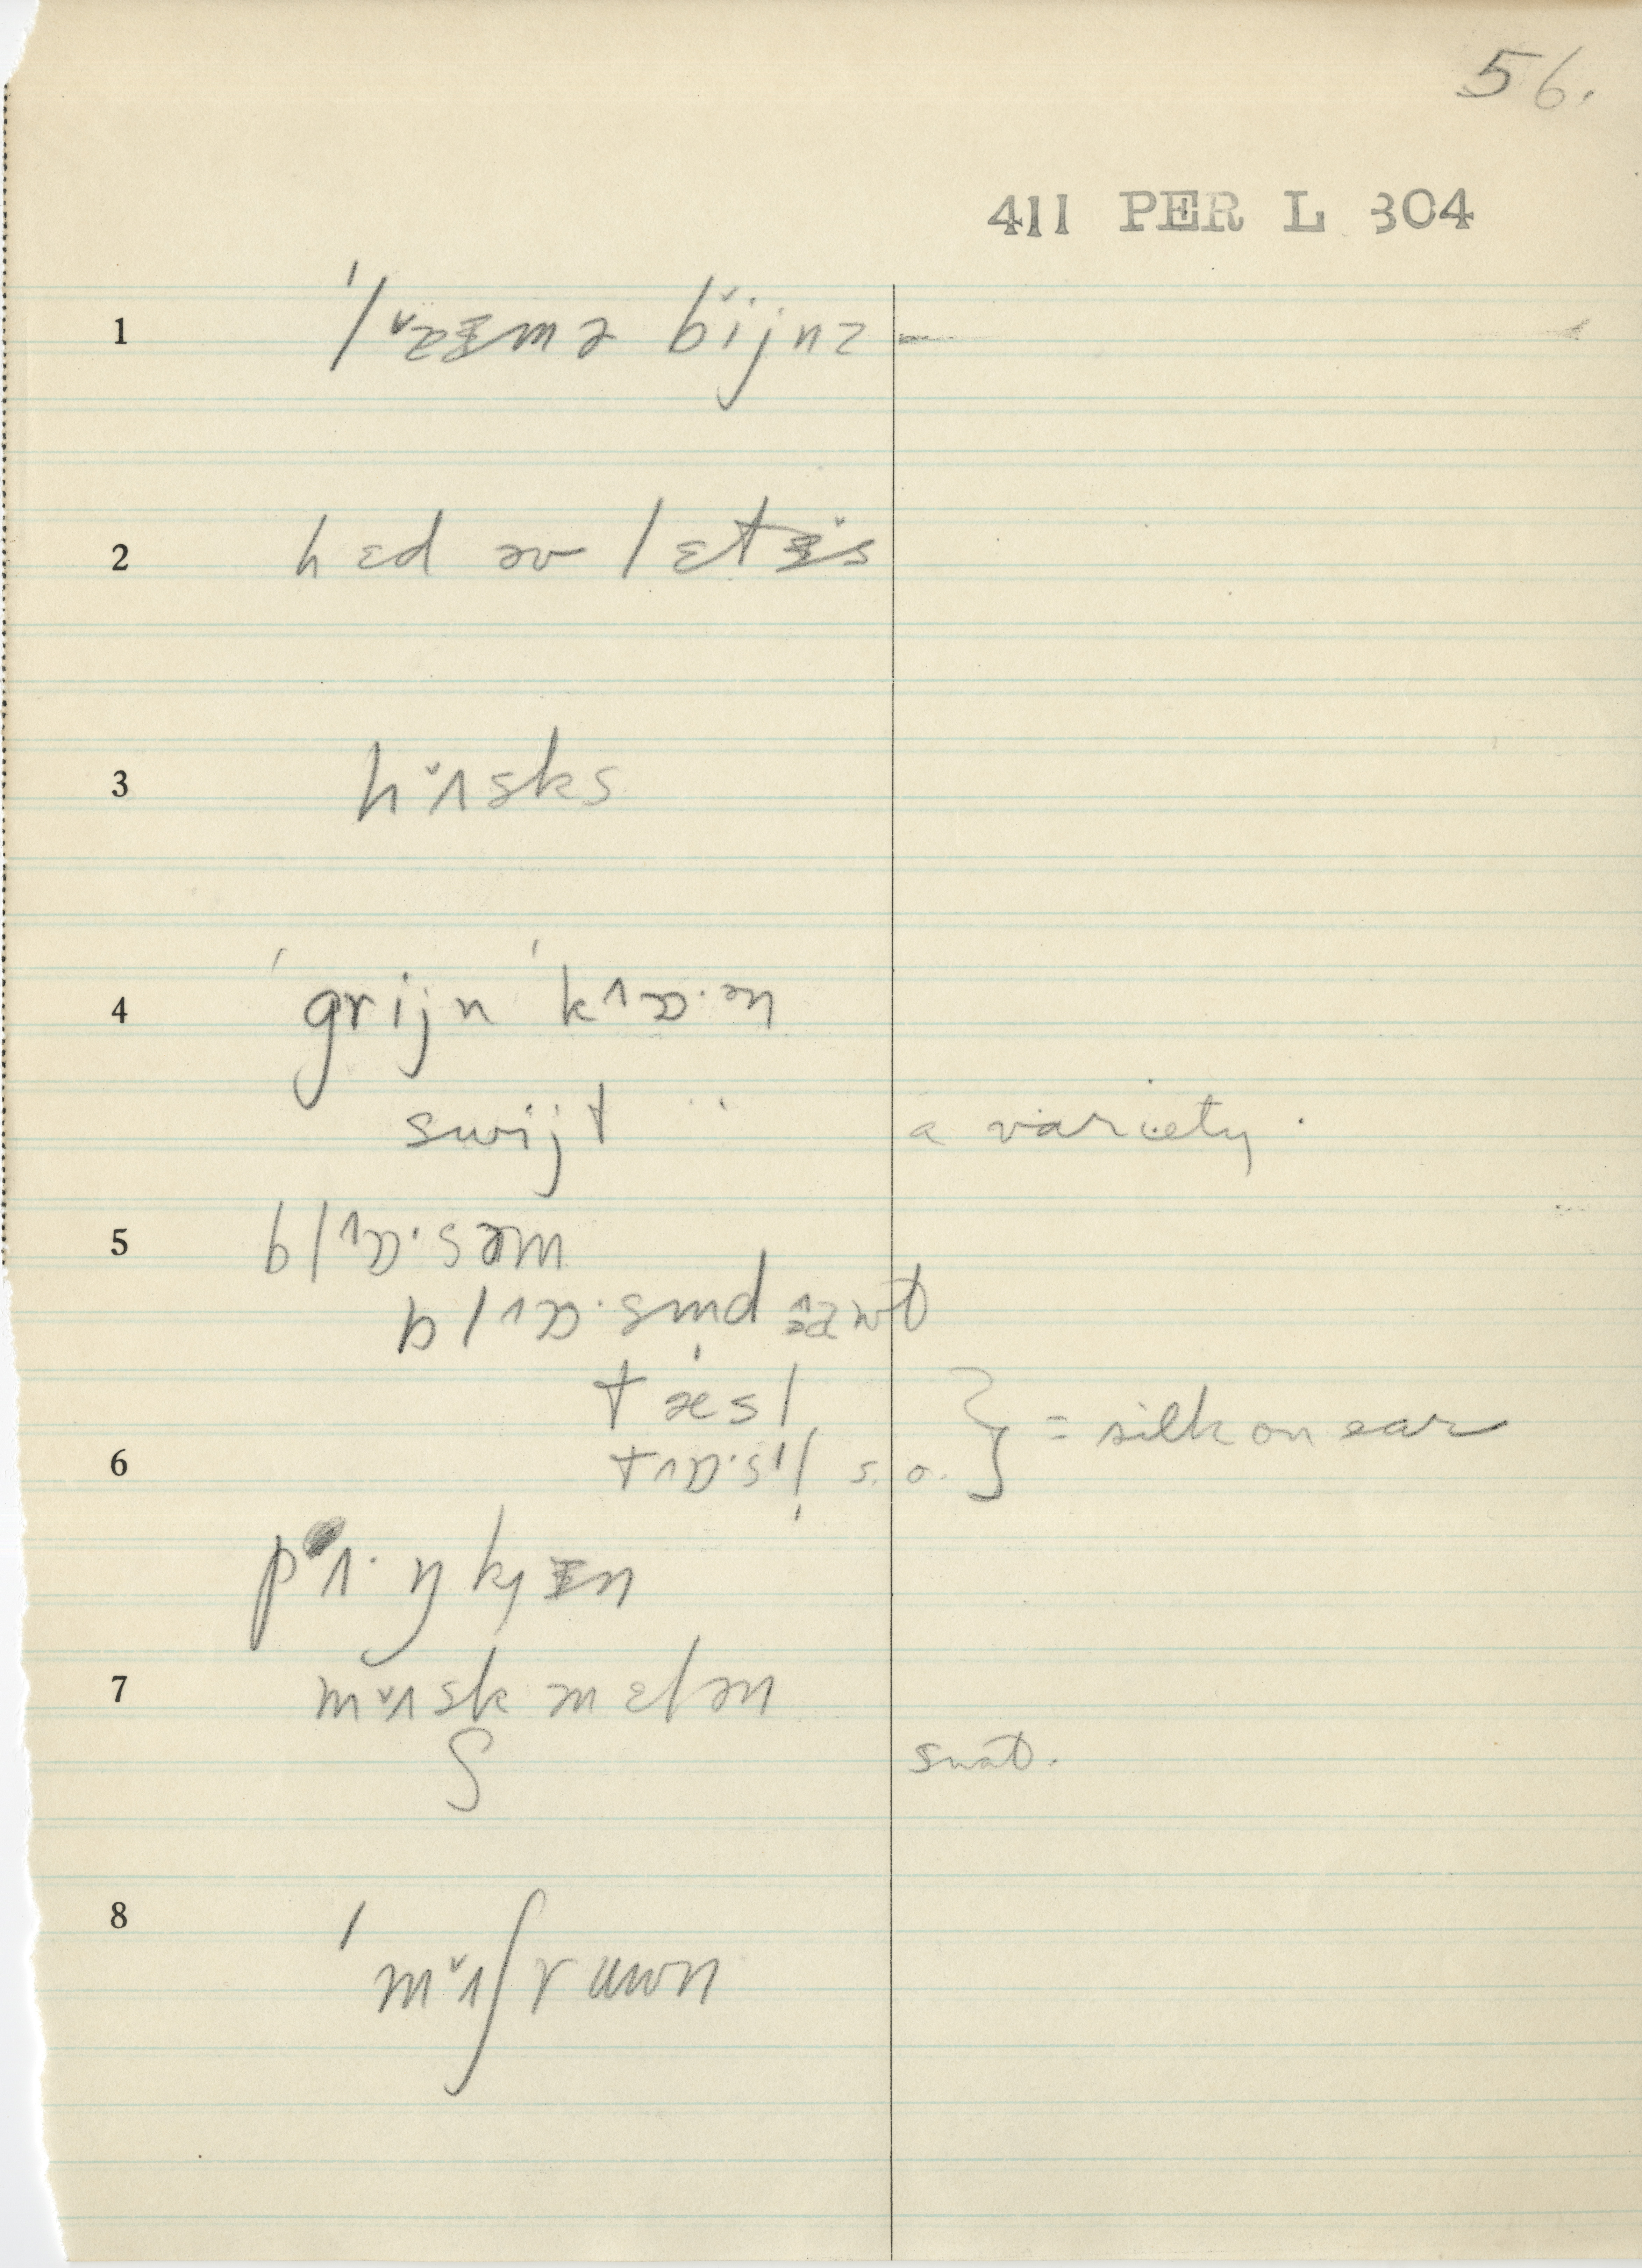 56.
411 PER L 304
1 ˈlᵛɐɪmə bɪ̆jnz –
2 hɛd əv lɛtɪ̆s
3 hᵛʌsks
4 ˈgrijn ˈkᶺɒ·ən
swijt ·· a variety.
5 blᶺɒ·səm
blᶺɒ·sm̩d awt
tæsl
6 tᶺɒ·sˡl̩ s.o. } = silk on ear
pʌ·ŋkɪn
7 mᵛʌsk mɛlən
ʃ
8 ˈmᵛʌʃruwn